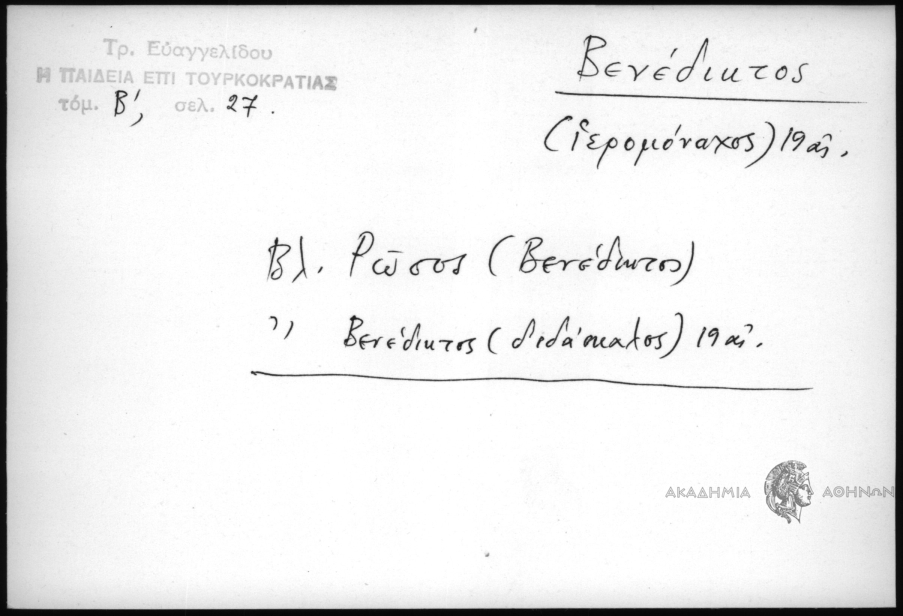 Τρ. Εὐαγγελίδου
Η ΠΑΙΔΕΙΑ ΕΠΙ ΤΟΥΡΚΟΚΡΑΤΙΑΣ
τόμ. Β', σελ. 27.
Βενέδικτος
(ἱερομόναχος) 19 αἰ.
Βλ. Ρῶσος (Βενέδικτος)
,, Βενέδικτος (διδάσκαλος) 19 αἰ.
ΑΚΑΔΗΜΙΑ ΑΘΗΝΩΝ